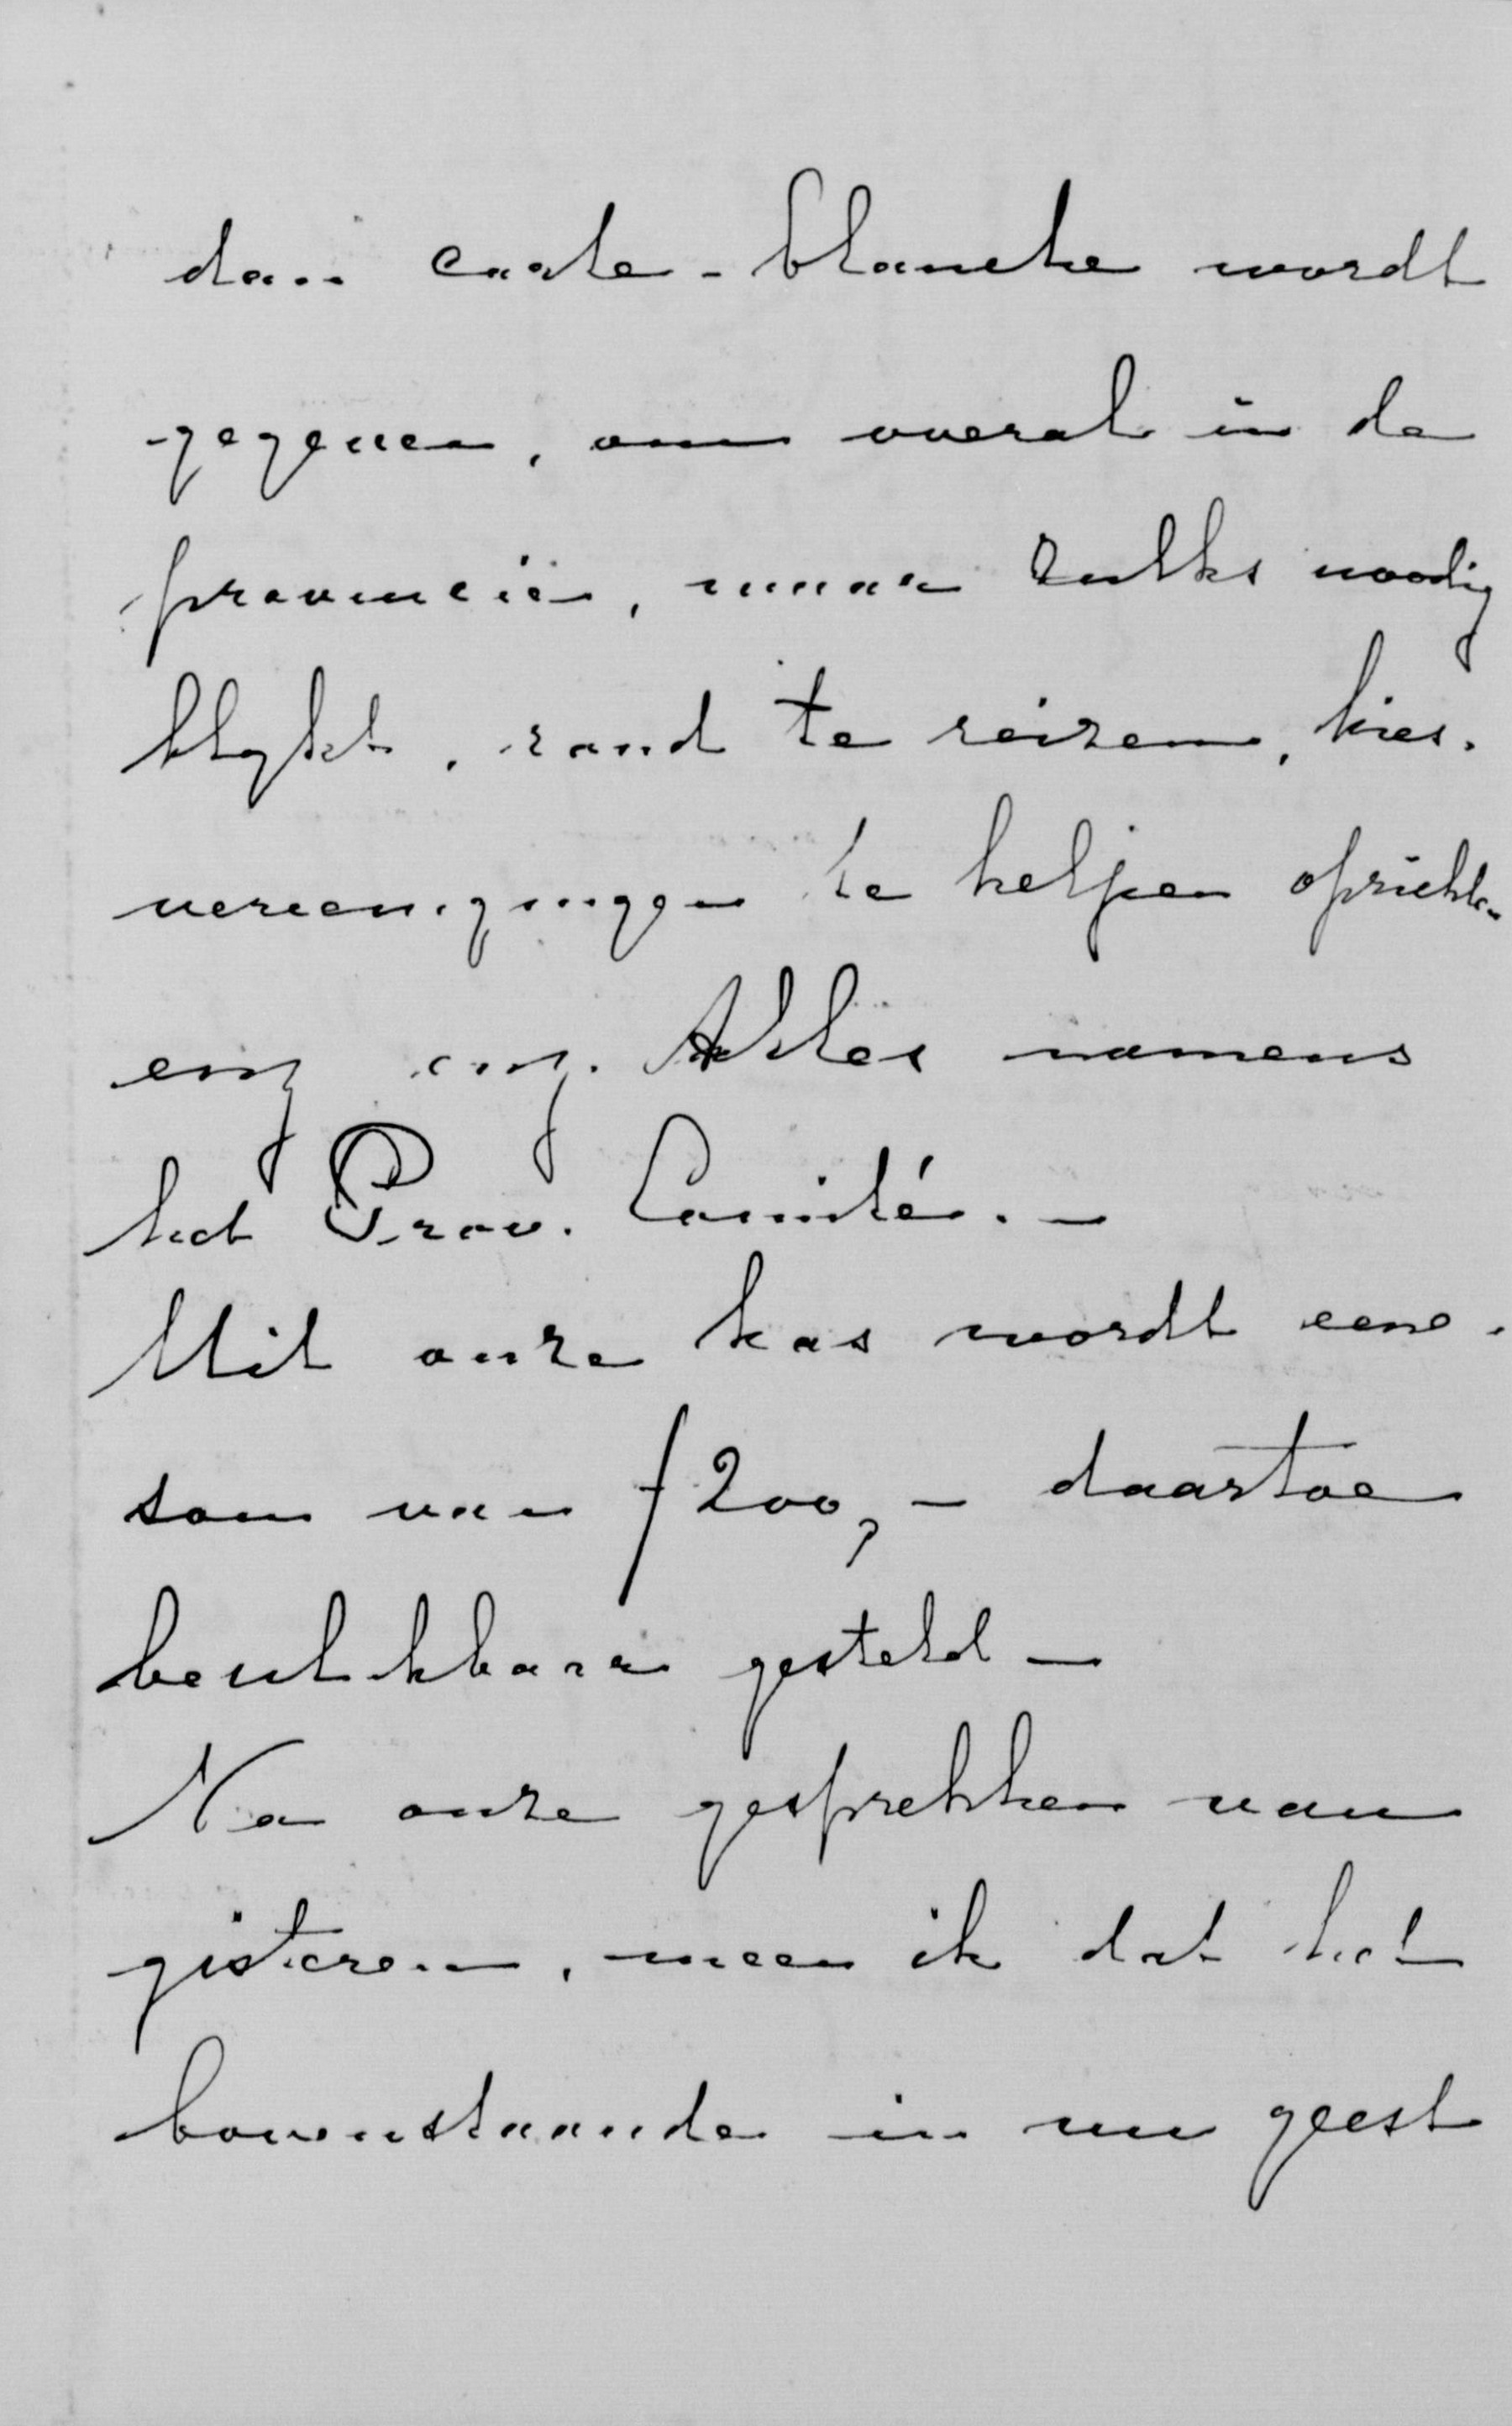 dan carte-blanche wordt
gegeven, om overal in de
provincie, waar zulks noodig
blykt, rond te reizen, kies-
vereenigingen te helpen oprichten
enz enz. Alles namens
het Prov. Comité. —
Uit onze kas wordt eene
som van f 200,- daartoe
beschikbaar gesteld —
Na onze gesprekken van
gisteren, meen ik dat het
bovenstaande in uw geest